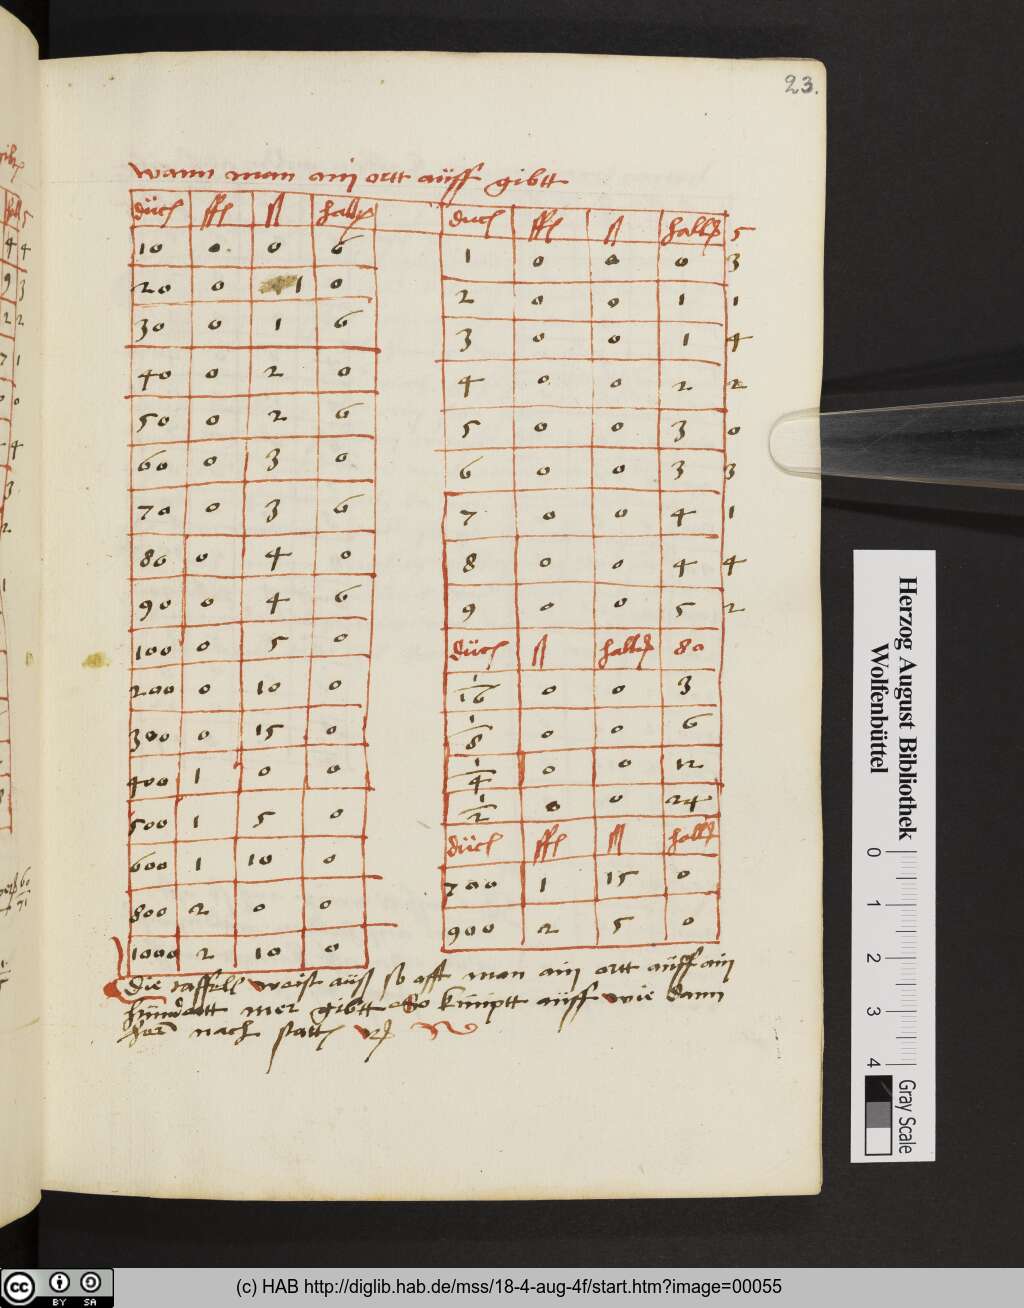 23.
wann man ain ortt auff gibtt
duc ffl ß hallr
10 0 0 6
20 0 1 0
30 0 1 6
40 0 2 0
50 0 2 6
60 0 3 0
70 0 3 6
80 0 4 0
90 0 4 6
100 0 5 0
200 0 10 0
300 0 15 0
400 1 0 0
500 1 5 0
600 1 10 0
800 2 0 0
1000 2 10 0
duc ffl ß hallr 5
1 0 0 0 3
2 0 0 1 1
3 0 0 1 4
4 0 0 2 2
5 0 0 3 0
6 0 0 3 3
7 0 0 4 1
8 0 0 4 4
9 0 0 5 2
düc ß hallr 80
1/16 0 0 3
1/8 0 0 6
1/4 0 0 12
1/2 0 0 24
düc ffl ß hallr
700 1 15 0
900 2 5 0
die taffell weist auß so offt man ain ortt auff ain
hundertt mer gibtt So kumptt auff wie dann
nach statt
Herzog August Bibliothek
Wolfenbüttel
0 1 2 3 4
Gray Scale
cc BY SA
(c) HAB http://diglib.hab.de/mss/18-4-aug-4f/start.htm?image=00055